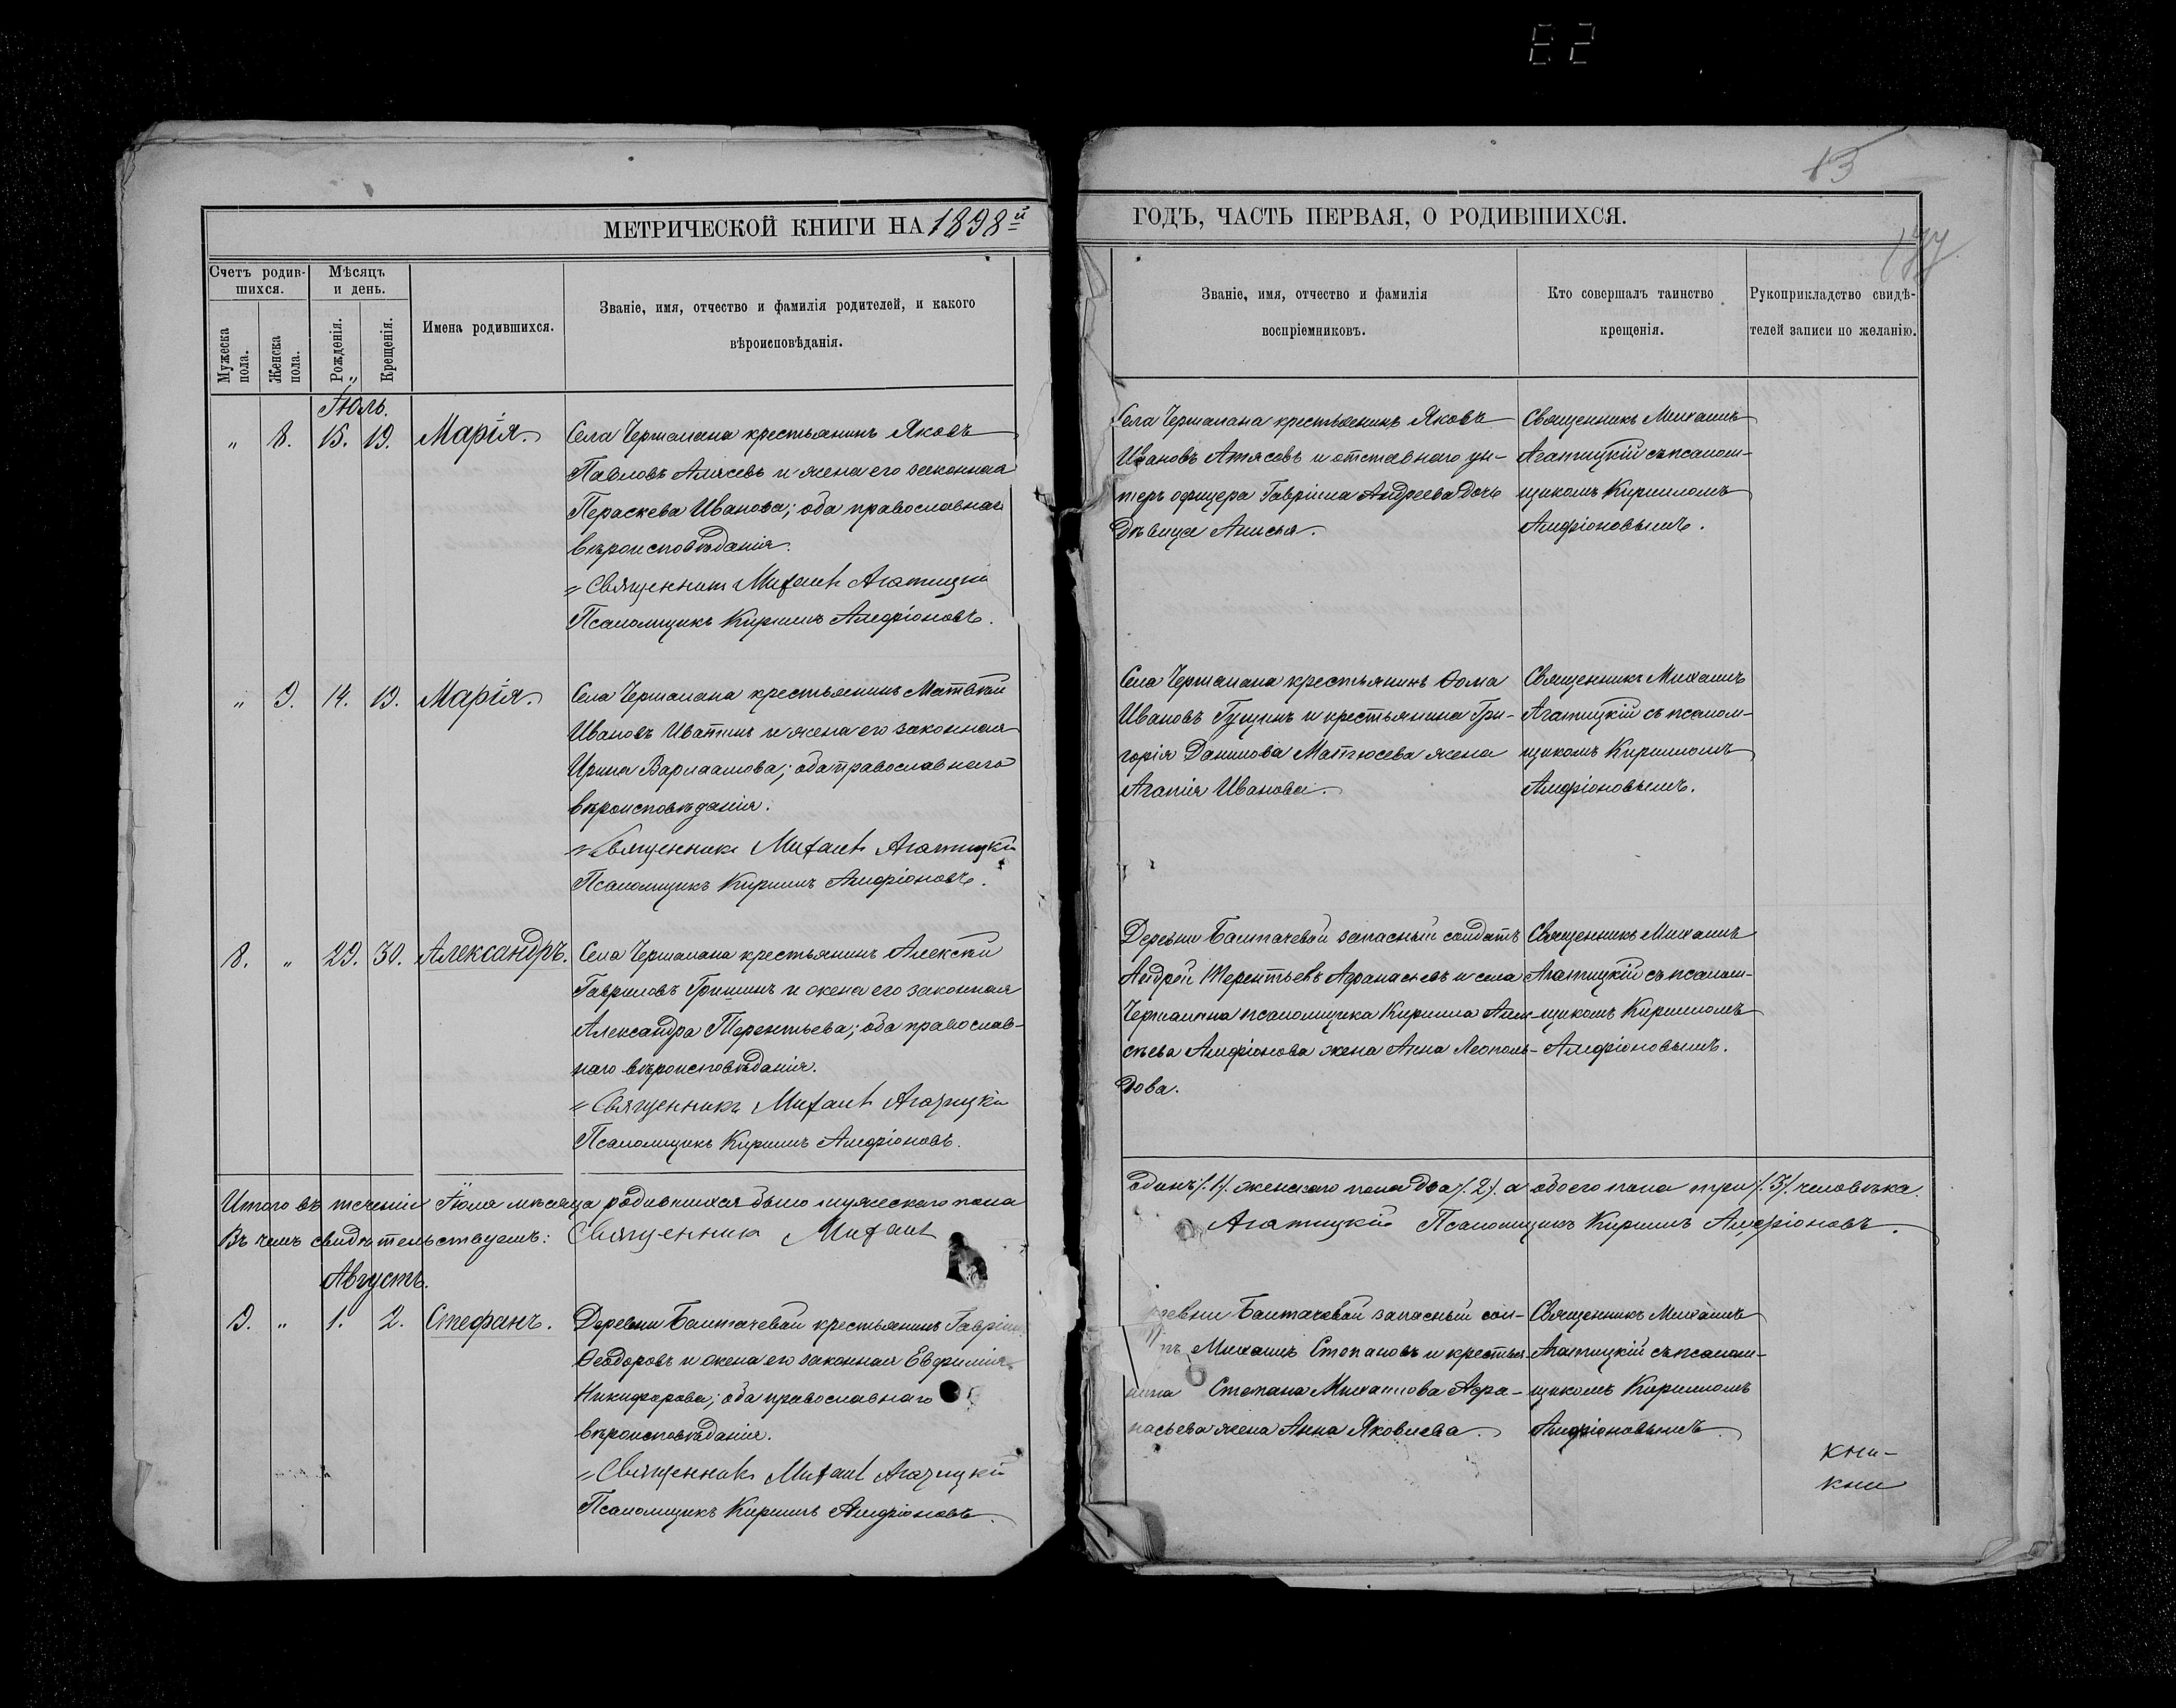 82
13
МЕТРИЧЕСКОЙ КНИГИ НА 1898й
ГОДЪ, ЧАСТЬ ПЕРВАЯ, О РОДИВШИХСЯ.
Счетъ родив-
шихся.
Мужеска
пола.
Женска
пола.
Мѣсяцъ
и день.
Рожденія.
Крещенія.
Имена родившихся.
Званіе, имя, отчество и фамилія родителей, и какого
вѣроисповѣданія.
Званіе, имя, отчество и фамилія
воспріемниковъ.
Кто совершалъ таинство
крещенія.
Рукоприкладство свидѣ-
телей записи по желанію.
Іюль.
" 8. 15. 19. Марія.
Села Чермалана крестьянинъ Яковъ
Павловъ и жена его законная
Параскева Иванова; оба православнаго
вѣроисповѣданія.
Священникъ Михаилъ Агатицкій
Псаломщикъ Кириллъ Амфіоновъ.
Села Чермалана крестьянинъ Яковъ
Ивановъ Атясовъ и отставного ун-
теръ офицера Гавріила Андреева дочь
дѣвица Анисья.
Священникъ Михаилъ
Агатицкій съ псалом-
щикомъ Кирилломъ
Амфіоновымъ.
" 9. 14. 19. Марія.
Села Чермалана крестьянинъ Матвѣй
Ивановъ Иватинъ и жена его законная
Ирина Варлаамова; оба православнаго
вѣроисповѣданія.
Священникъ Михаилъ Агатицкій
Псаломщикъ Кириллъ Амфіоновъ.
Села Чермалана крестьянинъ Ѳома
Ивановъ Гущинъ и крестьянина Гри-
горія Данилова Матюсева жена
Агапія Иванова.
Священникъ Михаилъ
Агатицкій съ псалом-
щикомъ Кирилломъ
Амфіоновымъ.
8. " 29. 30. Александръ.
Села Чермалана крестьянинъ Алексѣй
Гавриловъ Гришинъ и жена его законная
Александра Терентьева; оба православ-
наго вѣроисповѣданія.
Священникъ Михаилъ Агатицкій
Псаломщикъ Кириллъ Амфіоновъ.
Деревни Баштачевой запасный солдатъ
Андрей Терентьевъ Афанасьевъ и села
Чермалана псаломщика Кирилла Алек-
сѣева Амфіонова жена Анна Леополь-
дова.
Священникъ Михаилъ
Агатицкій съ псалом-
щикомъ Кирилломъ
Амфіоновымъ.
Итого въ теченіи Іюля мѣсяца родившихся было мужескаго пола
одинъ /.1/. женскаго пола два /.2/. а обоего пола три /.3/. человѣка.
Въ чемъ свидѣтельствуемъ: Священникъ Михаилъ
Агатицкій Псаломщикъ Кириллъ Амфіоновъ.
Августъ.
9. " 1. 2. Стефанъ.
Деревни Баштачевой крестьянинъ Гавріилъ
Ѳеодоровъ и жена его законная Евфимія
Никифорова; оба православнаго
вѣроисповѣданія.
Священникъ Михаилъ Агатицкій
Псаломщикъ Кириллъ Амфіоновъ.
ревни Баштачевой запасный сол-
тъ Михаилъ Степановъ и крестья-
нина Степана Михаилова Афа-
насьева жена Анна Яковлева.
Священникъ Михаилъ
Агатицкій съ псалом-
щикомъ Кирилломъ
Амфіоновымъ.
кни-
кни